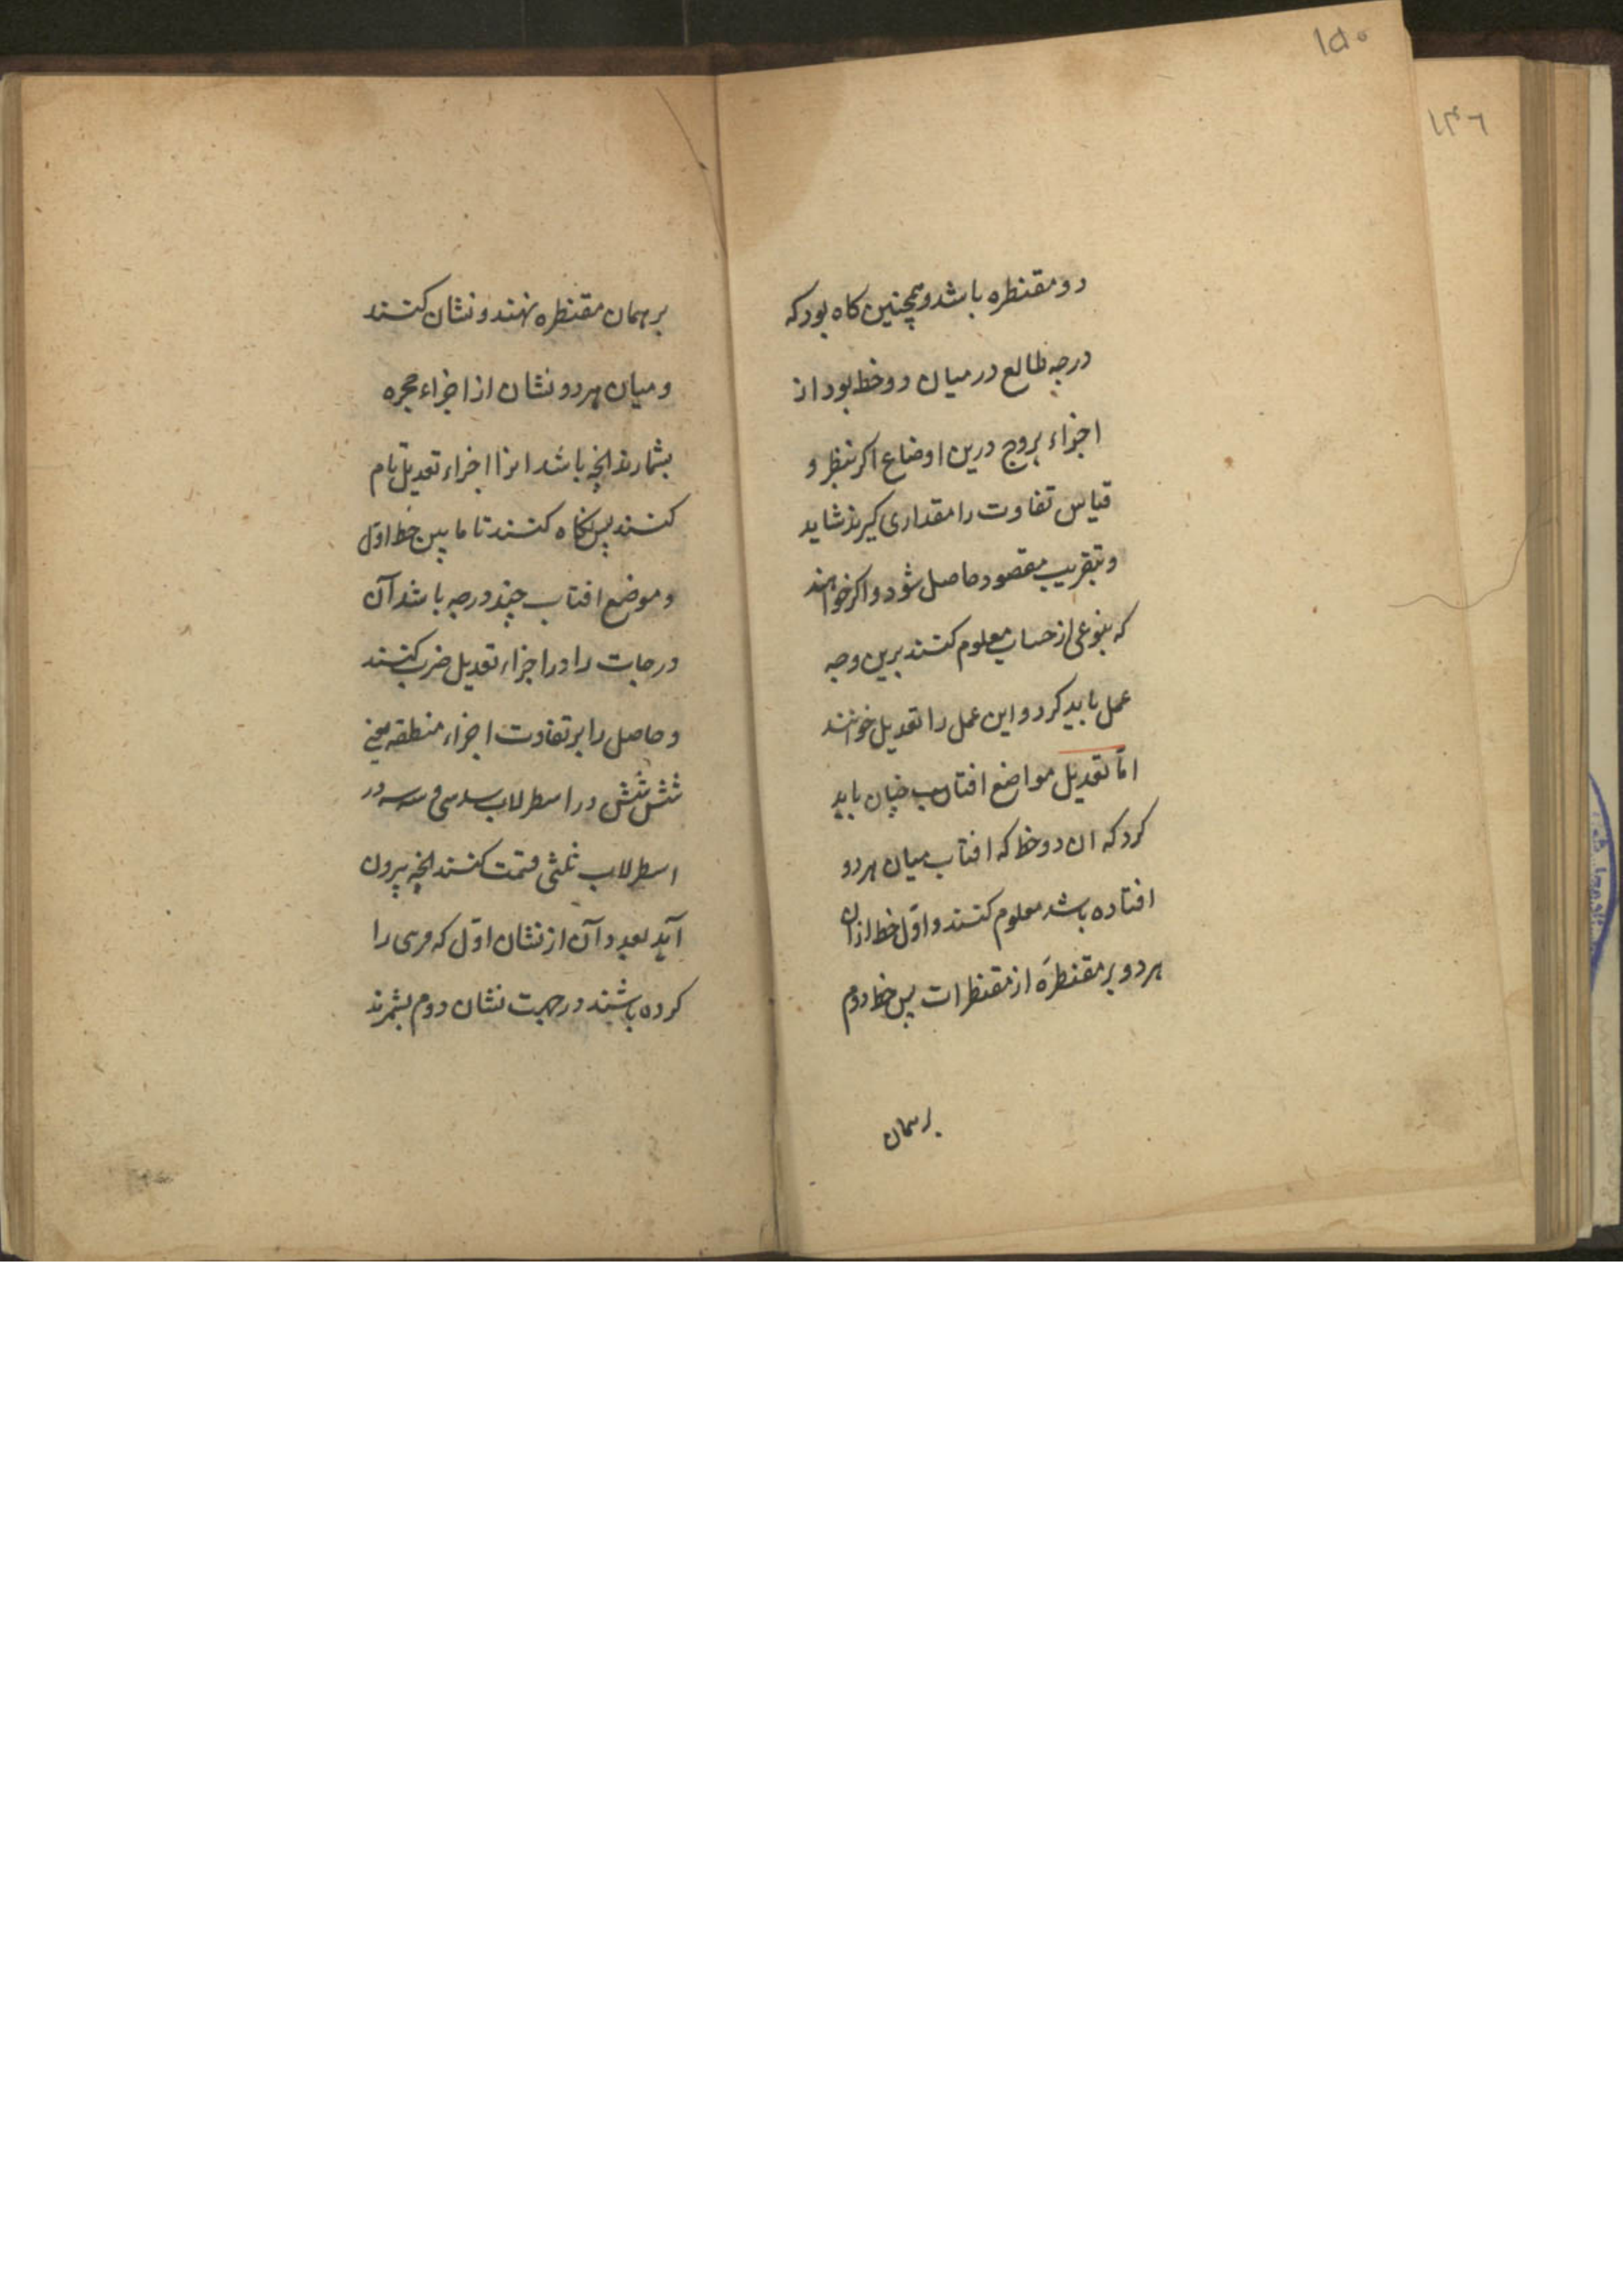 ۱۵۰
۱۴۶
دو مقنطره باشد و همچنین کاه بود که
درجه طالع در میان دو خط بود از
اجزاء بروج درین اوضاع اکر بنظر و
قیاس تفاوت را مقداری کیرند شاید
و بتقریب مقصود حاصل شود و اکر خواهند
که بنوعی از حساب معلوم کنند برین وجه
عمل باید کرد و این عمل را تعدیل خوانند
اما تعدیل مواضع افتاب چنان باید
کرد که ان دو خط که افتاب میان هر دو
افتاده باشد معلوم کنند و اوّل خط از ان
هر دو بر مقنطرهٔ از مقنطرات پس خط دوم
بر همان
بر همان مقنطره نهند و نشان کنند
و میان هر دو نشان از اجزاء حجره
بشمارند انچه باشد انرا اجزاء تعدیل نام
کنند پس نکاه کنند تا ما بین خط اوّل
و موضع افتاب چند درجه باشد آن
درجات را در اجزاء تعدیل ضرب کنند
و حاصل را بر تفاوت اجزاء منطقه یعنی
شش شش در اسطرلاب سدسی و سه سه در
اسطرلاب ثلثی قسمت کنند انچه بیرون
آید بعدد آن از نشان اوّل که مری را
کرده باشند در جهت نشان دوم بشمرند